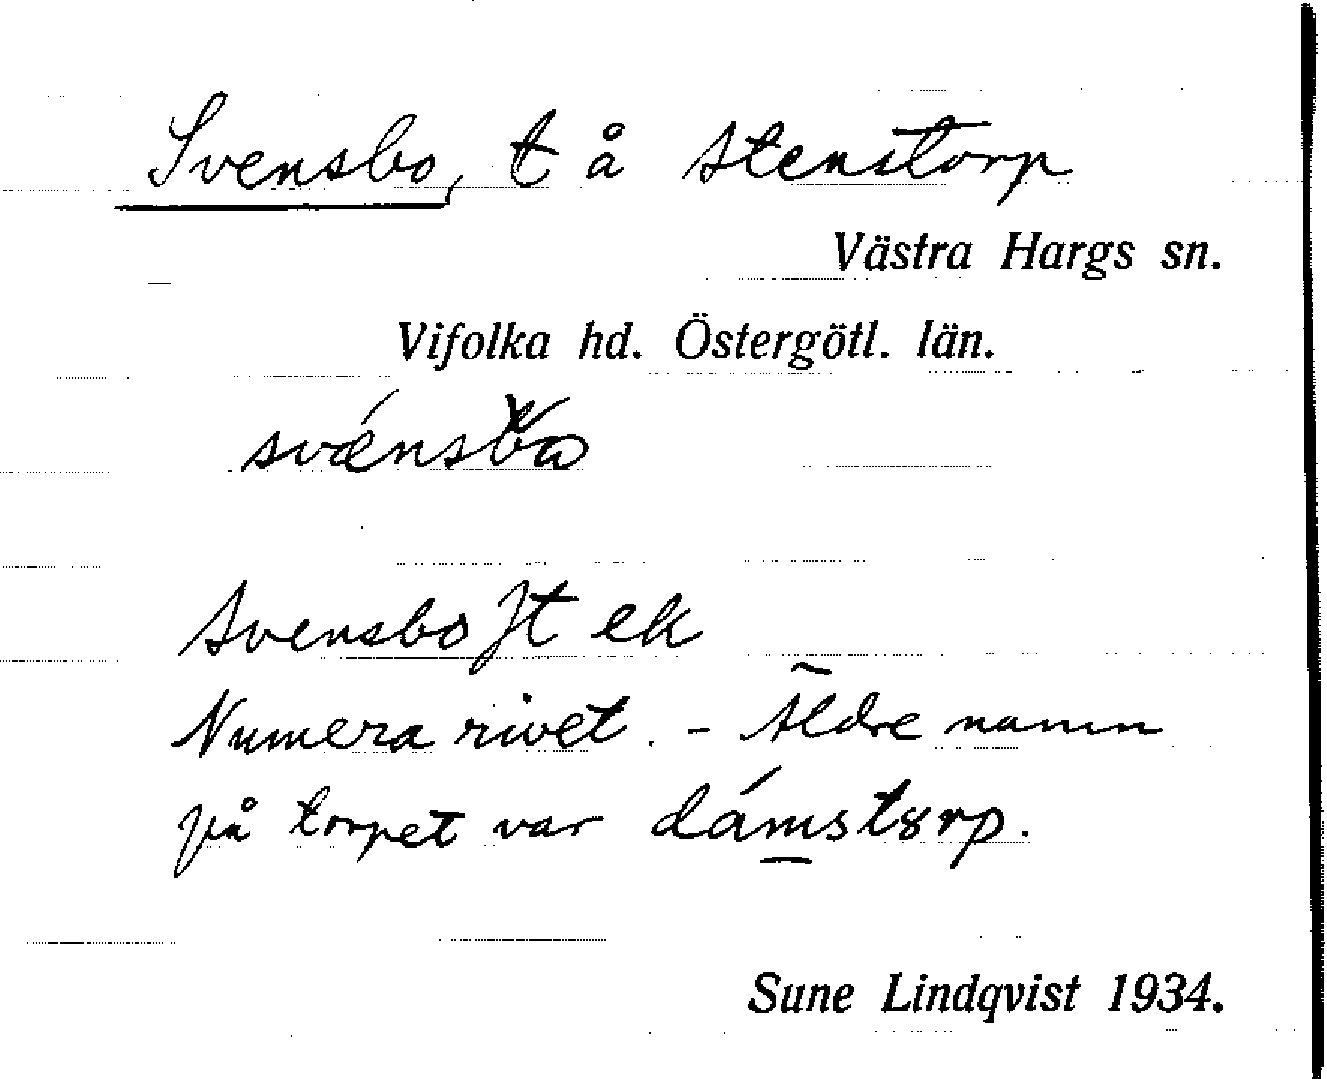 Svensbo, t å Stenstorp
Västra Hargs sn.
Vifolka hd. Östergötl. län.
Svensbo Jt ek
Numera rivet. - Äldre namn
på torpet var dámstørp.
Sune Lindqvist 1934.